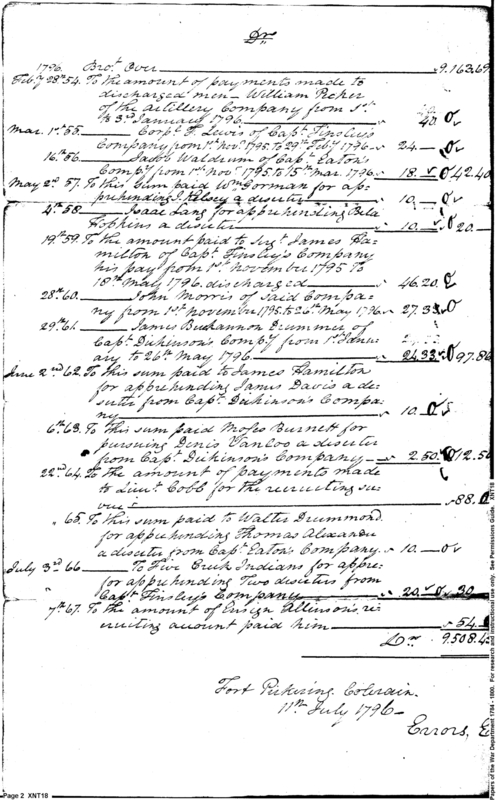 Dr.
1796. Bro.t Over 9.163.69
Feb.y 28th 54. To the amount of payments made to
discharged men - William Picher
of the artillery Company from 1st
to 3d January 1796 40
Mar. 1st 55. Corp.l F. Lewis of Capt. Tinsley's
Company from 1st Nov.r 1795 to 29th Feb.y 1796 24.
16th 56. Jacob Waldrum of Capt. Eaton's
Comp.y from 1st Nov.r 1795 to 15th Mar. 1796 18. 42.40
May 2d 57. To this sum paid Wm. Gorman for ap=
prehending J. Kelsey a deserter 10.
4th 58 Isaac Lang for apprehending Bela
Hopkins a deserter 10. 20.
19th 59. To the amount paid to Serg.t James Ha=
milton of Capt. Tinsley's Company
his pay from 1st November 1795 to
18th May 1796. discharged 46.20
28th 60. John Morris of said Compa=
ny from 1st November 1795 to 26th May 1796 27.33
29th 61. James Buchannon Drummer of
Capt. Dickinson's Comp.y from 1st Janu=
ary to 26th May 1796 24.33 97.86
June 2nd 62. To this sum paid to James Hamilton
for apprehending James Davis a de=
serter from Capt. Dickinson's Compa=
ny 10.
6th 63. To this sum paid Moses Burnett for
pursuing Denis Vanloo a deserter
from Capt. Dickinson's Company 2.50 12.50
22nd 64. To the amount of payments made
to Lieut. Cobb for the recruiting ser=
vice 88.
" 65. To this sum paid to Walter Drummond
for apprehending Thomas Alexander
a deserter from Capt. Eaton's Company 10.
July 3rd 66 To Five Creek Indians for appre=
" for apprehending Two deserters from
Capt. Tinsley's Company 20. 30
7th 67. To the amount of Ensign Allinson's re=
cruiting account paid him 54.
Dr. 9.508.4
Fort Pickering, Colerain.
11th July 1796
Errors, E
Page 2 XNT18
Papers of the War Department 1784 - 1800. For research and instructional use only. See Permissions Guide. XNT18